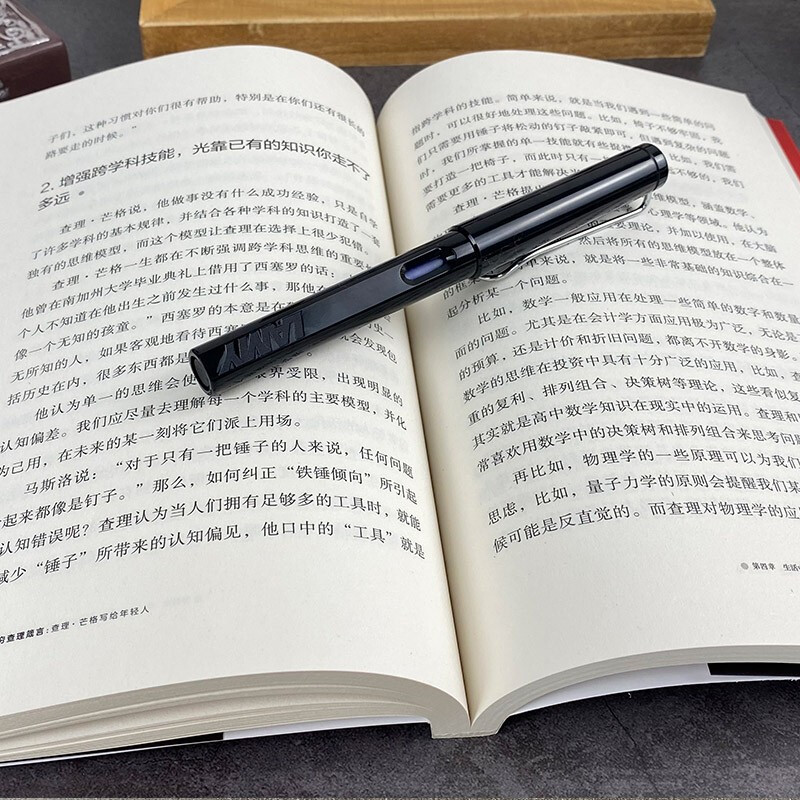 子们，这种习惯对你们很有帮助，特别是在你们还有很长的
路要走的时候。”
2. 增强跨学科技能，光靠已有的知识你走不了
多远
查理·芒格说，他做事没有什么成功经验，只是自学
了许多学科的基本规律，并结合各种学科的知识打造了一套
独有的思维模型，而这个模型让查理在选择上很少犯错。
查理·芒格一生都在不断强调跨学科思维的重要
他曾在南加州大学毕业典礼上借用了西塞罗的话：
个人不知道在他出生之前发生过什么事，那他在
像一个无知的孩童。”西塞罗的本意是在
无所知的人，如果客观地看待西塞 会发现包
括历史在内，很多东西都是
他认为单一的思维会使 眼界受限，出现明显的
认知偏差。我们应尽量去理解每一个学科的主要模型，并化
为己用，在未来的某一刻将它们派上用场。
马斯洛说：“对于只有一把锤子的人来说，任何问题
起来都像是钉子。”那么，如何纠正“铁锤倾向”所引起
认知错误呢？查理认为当人们拥有足够多的工具时，就能
减少“锤子”所带来的认知偏见，他口中的“工具”就是
的查理箴言：查理·芒格写给年轻人
指跨学科的技能。简单来说，就是当我们遇到一些简单的问
题时，可以很好地处理这些问题。比如，椅子不够牢固，我
们只需要用锤子将松动的钉子敲紧即可，但遇到复杂的问题
时，我们所掌握的单一技能就有些捉 比如，我们需
要打造一把椅子，而此时只有一 不够的，我们
需要更多的工具才能解决
查理·芒格提出 思维模型，涵盖数学、
心理学等领域。他认为
要理论，并加以使用，在大脑
然后将所有的思维模型放在一个整体
的框 来说，就是将一些非常基础的知识综合在一
起分析某一个问题。
比如，数学一般应用在处理一些简单的数字和数量
面的问题。尤其是在会计学方面应用极为广泛，无论是
的预算，还是计价和折旧问题，都离不开数学的身影。
数学的思维在投资中具有十分广泛的应用，比如，查
重的复利、排列组合、决策树等理论，这些看似复
其实就是高中数学知识在现实中的运用。查理和
常喜欢用数学中的决策树和排列组合来思考问题
再比如，物理学的一些原理可以为我们
思虑，比如，量子力学的原则会提醒我们某
候可能是反直觉的。而查理对物理学的应
第四章 生活
LAMY